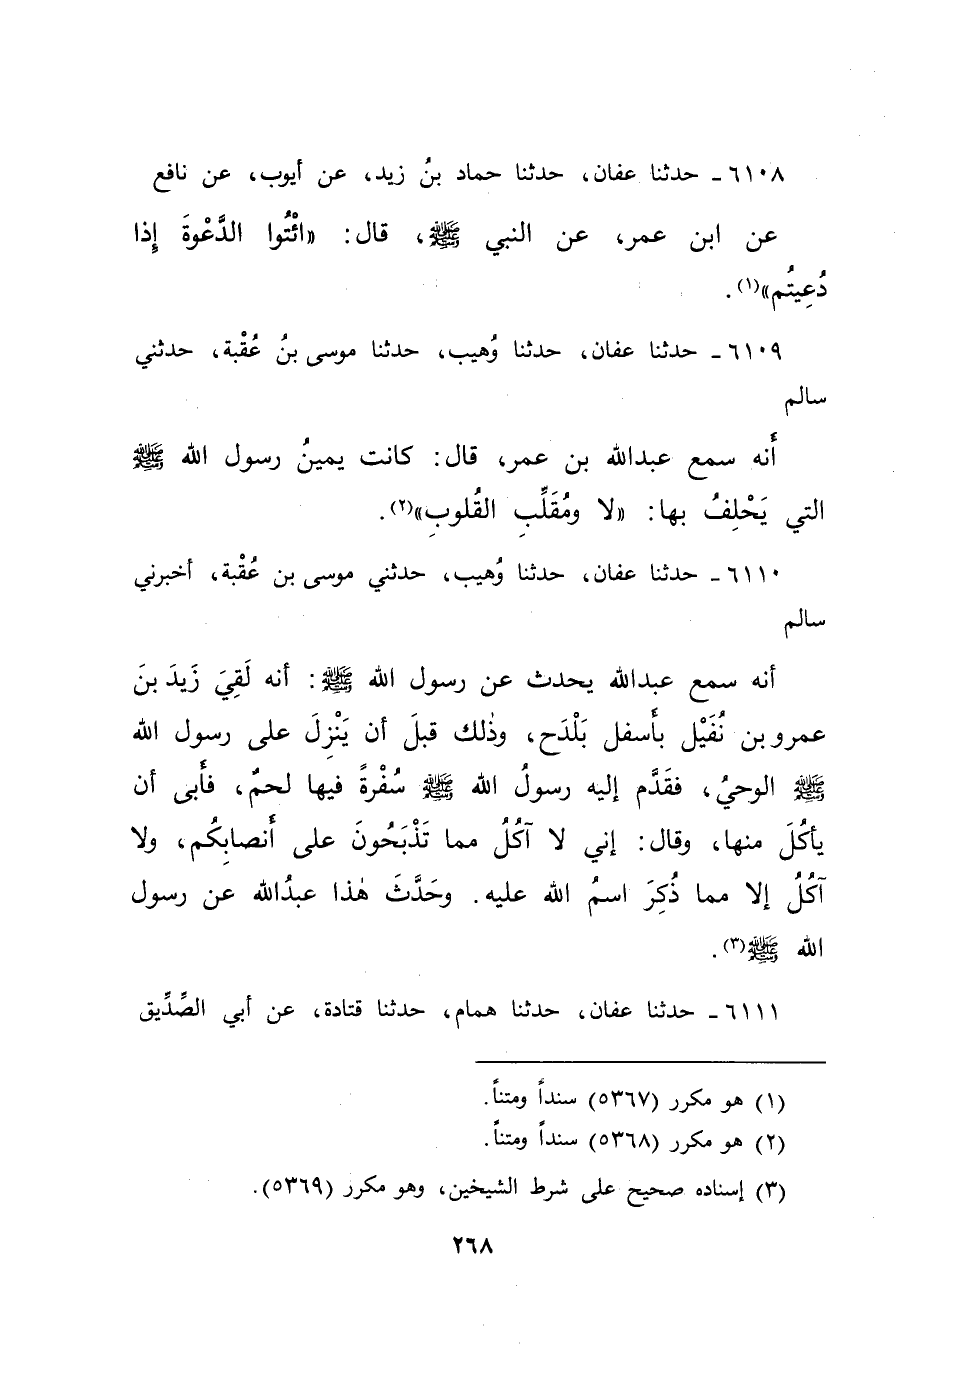 ٦١٠٨ـ حدثنا عفان، حدثنا حماد بنُ زيد، عن أيوب، عن نافع
عن ابن عمر، عن النبي ﷺ، قال: «ائْتُوا الدَّعْوةَ إِذا
دُعِيتُم»(١).
٦١٠٩ـ حدثنا عفان، حدثنا وُهيب، حدثنا موسى بنُ عُقْبة، حدثني
سالم
أَنه سمع عبدالله بن عمر، قال: كانت يمينُ رسول الله ﷺ
التي يَحْلِفُ بها: «لا ومُقَلِّبِ القُلوبِ»(٢).
٦١١٠ـ حدثنا عفان، حدثنا وُهيب، حدثني موسى بن عُقْبة، أخبرني
سالم
أنه سمع عبدالله يحدث عن رسول الله ﷺ: أنه لَقِيَ زَيدَ بنَ
عمرو بن نُفَيْل بأَسفل بَلْدَح، وذٰلك قبلَ أن يَنْزِلَ على رسول الله
ﷺ الوحيُ، فقَدَّم إليه رسولُ الله ﷺ سُفْرةً فيها لحمٌ، فأَبى أن
يأكُلَ منها، وقال: إني لا آكُلُ مما تَذْبَحُونَ على أَنصابِكُم، ولا
آكُلُ إلا مما ذُكِرَ اسمُ الله عليه. وحَدَّثَ هٰذا عبدُالله عن رسول
الله ﷺ(٣).
٦١١١ـ حدثنا عفان، حدثنا همام، حدثنا قتادة، عن أبي الصِّدِّيق
(١) هو مكرر (٥٣٦٧) سنداً ومتناً.
(٢) هو مكرر (٥٣٦٨) سنداً ومتناً.
(٣) إسناده صحيح على شرط الشيخين، وهو مكرر (٥٣٦٩).
٢٦٨